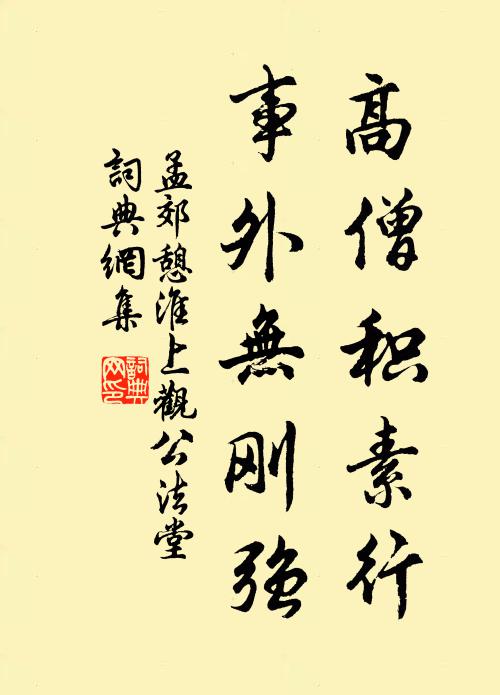 高僧积素行
事外無刚强
孟郊憩淮上觀公法堂
詞典網集
詞典
网印